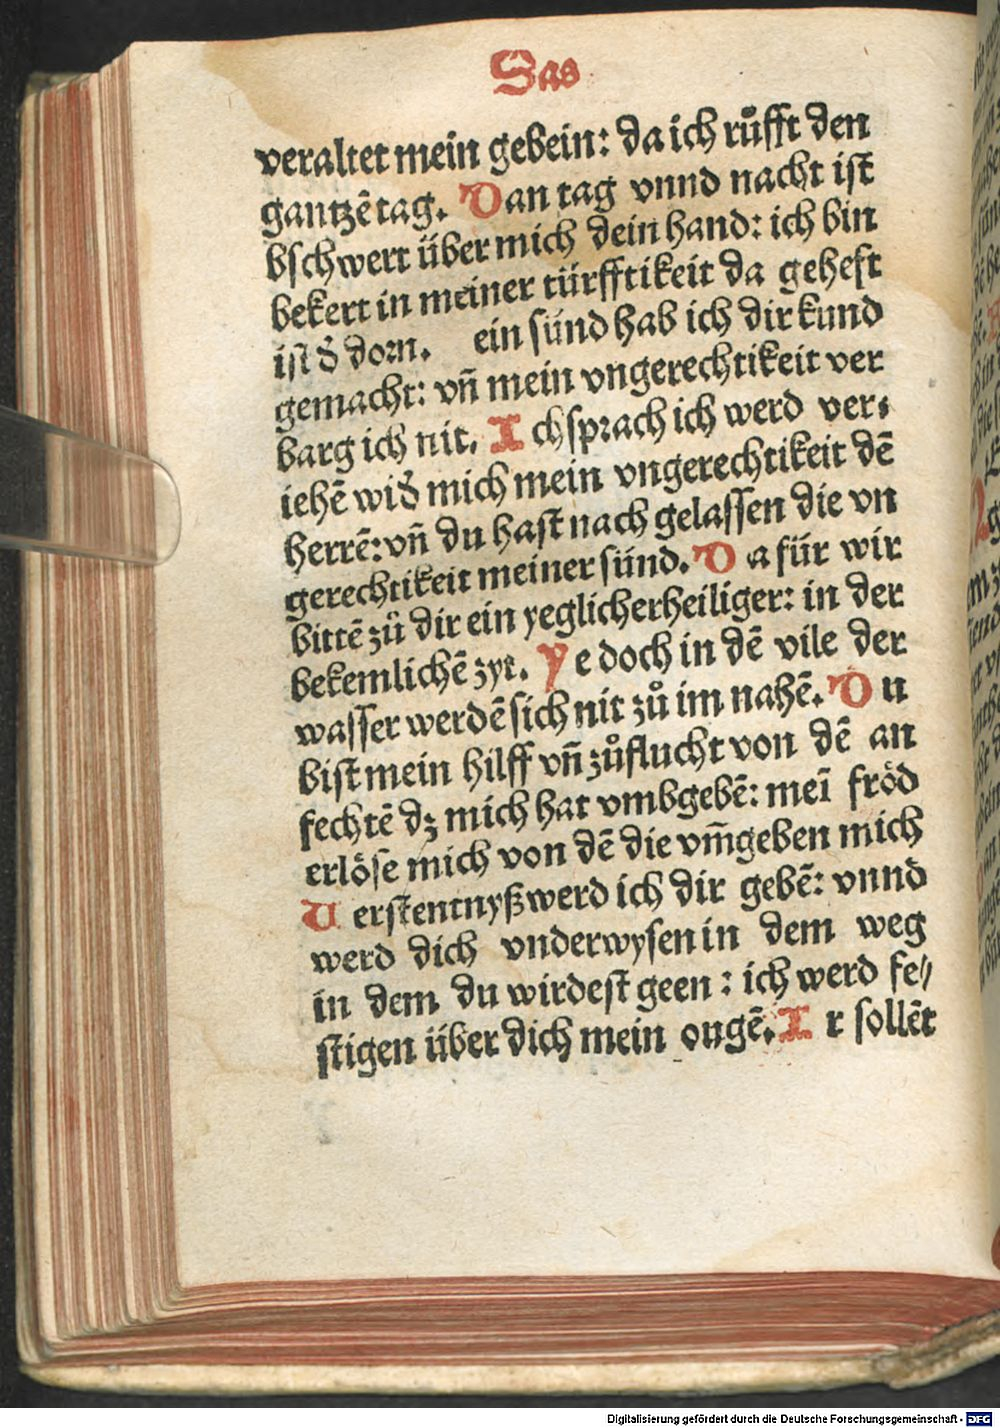 Das
veraltet mein gebein: da ich růfft den
gantzē tag. Dan tag vnnd nacht ist
bschwert über mich dein hand: ich bin
bekert in meiner türfftikeit da geheft
ist d̓ dorn. ein sünd hab ich dir kund
gemacht: vñ mein vngerechtikeit ver
barg ich nit. Ich sprach ich werd ver⸗
iehē wid̓ mich mein vngerechtikeit dē
herrē: vñ du hast nach gelassen die vn
gerechtikeit meiner sünd. Da für wir
bittē zů dir ein yeglicher heiliger: in der
bekemlichē zyt. Ye doch in dē vile der
wasser werdē sich nit zů im nahē. Du
bist mein hilff vñ zůflucht von dē an
fechtē dz mich hat vmbgebē: mei᷈ fröd
erlöse mich von dē die vm̄geben mich
Verstentnyß werd ich dir gebē: vnnd
werd dich vnderwysen in dem weg
in dem du wirdest geen: ich werd fe⸗
stigen über dich mein ougē. Ir sollēt
Digitalisierung gefördert durch die Deutsche Forschungsgemeinschaft - DFG